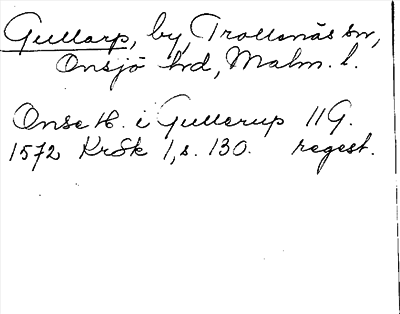 Gullarp, by, Trollenäs sn,
Onsjö hd, Malm. l.
Onse H. i Gullerup 11G.
1572 KrSk 1, s. 130. regest.